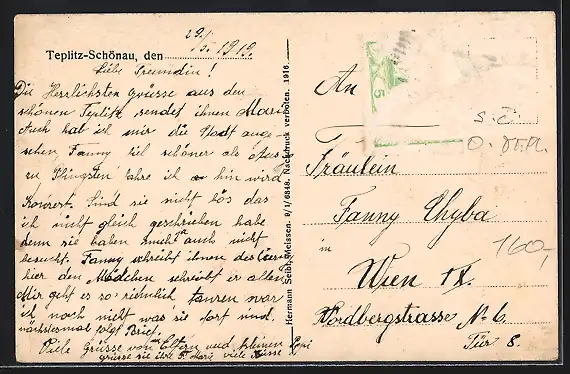 Teplitz-Schönau, den 29./5. 1919.
Liebe Freundin!
Die Herzlichsten Grüsse aus den
schönen Teplitz sendet ihnen Marie
Auch hat ich mir die Stadt ange-
sehen Fanny viel schöner als
zu Pfingsten fahre ich hin wird
Konzert. Sind sie nicht bös das
ich nicht gleich geschrieben habe
denn sie haben mich auch nicht
besucht. Fanny schreibt ihnen
hier den Mädchen schreibt er allen
Mir geht es so ziemlich tanzen war
ich noch nicht was sie dort sind.
nächstesmal folgt Brief.
Viele Grüsse von Eltern und kleinen Pepi
grüsse sie ihre Marie viele Küsse
Hermann Seibt, Meissen. 9/1/6848. Nachdruck verboten. 1916.
5
An
Fräulein
Fanny Chyba
in
Wien IX.
Nordbergstrasse No 6.
Tür 8.
160,-